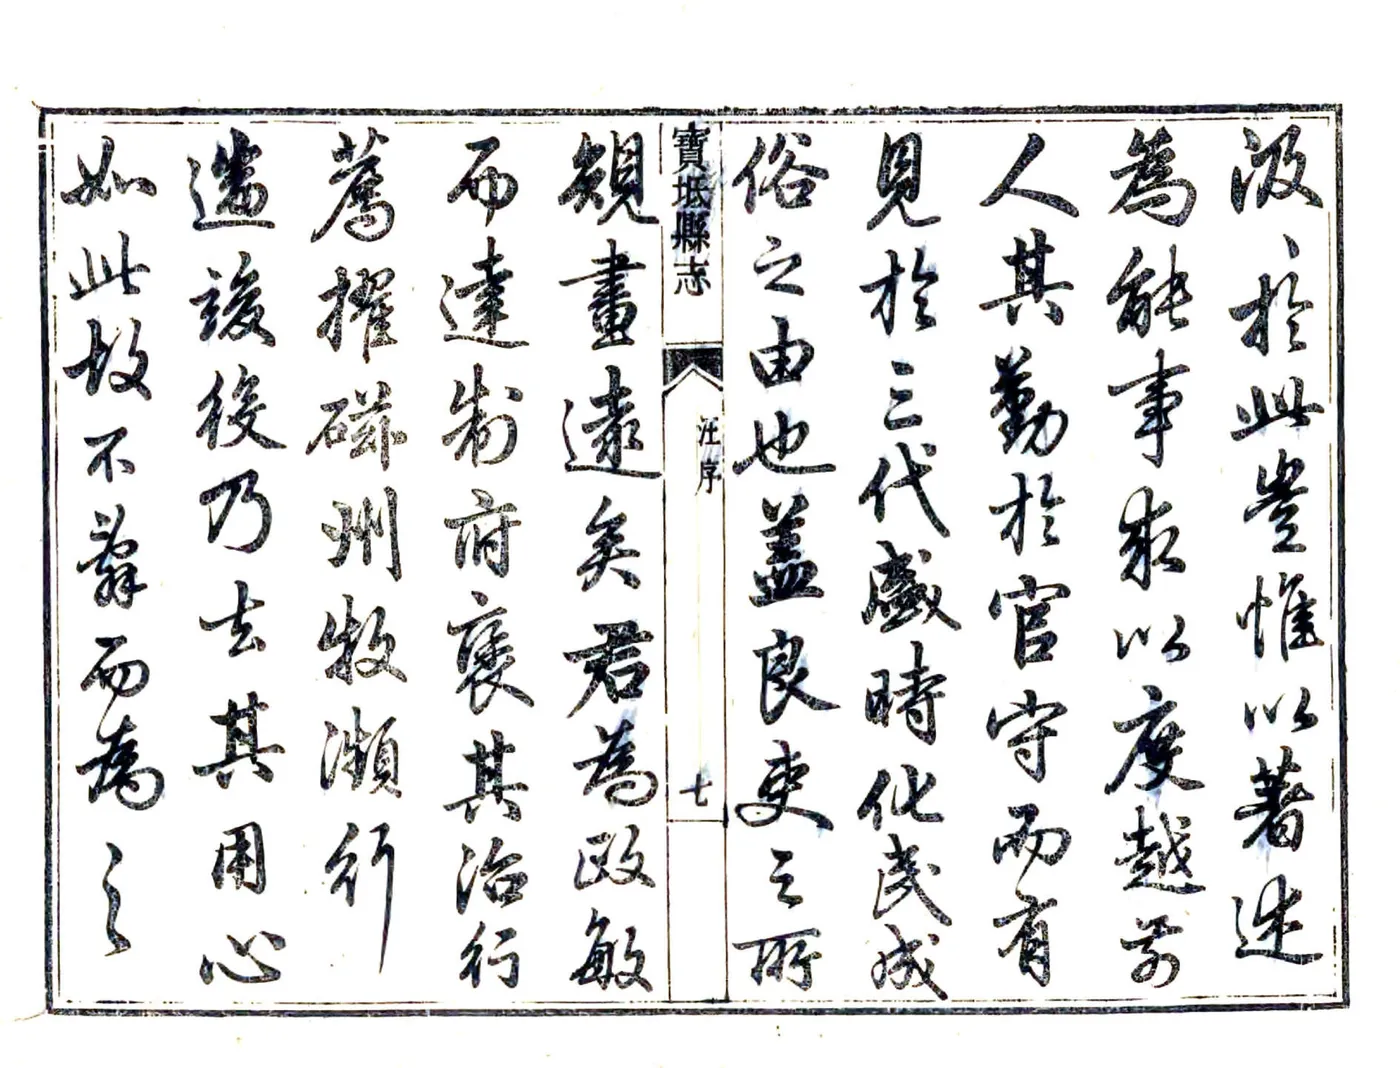 汲於此豈惟以著述
為能事求以度越前
人其勤於官守而有
見於三代盛時化民成
俗之由也蓋良吏之所
寶坻縣志
汪序
七
規畫遠矣君為政敏
而達制府褒其治行
薦擢磁州牧瀕行
遽竣後乃去其用心
如此故不辭而為之